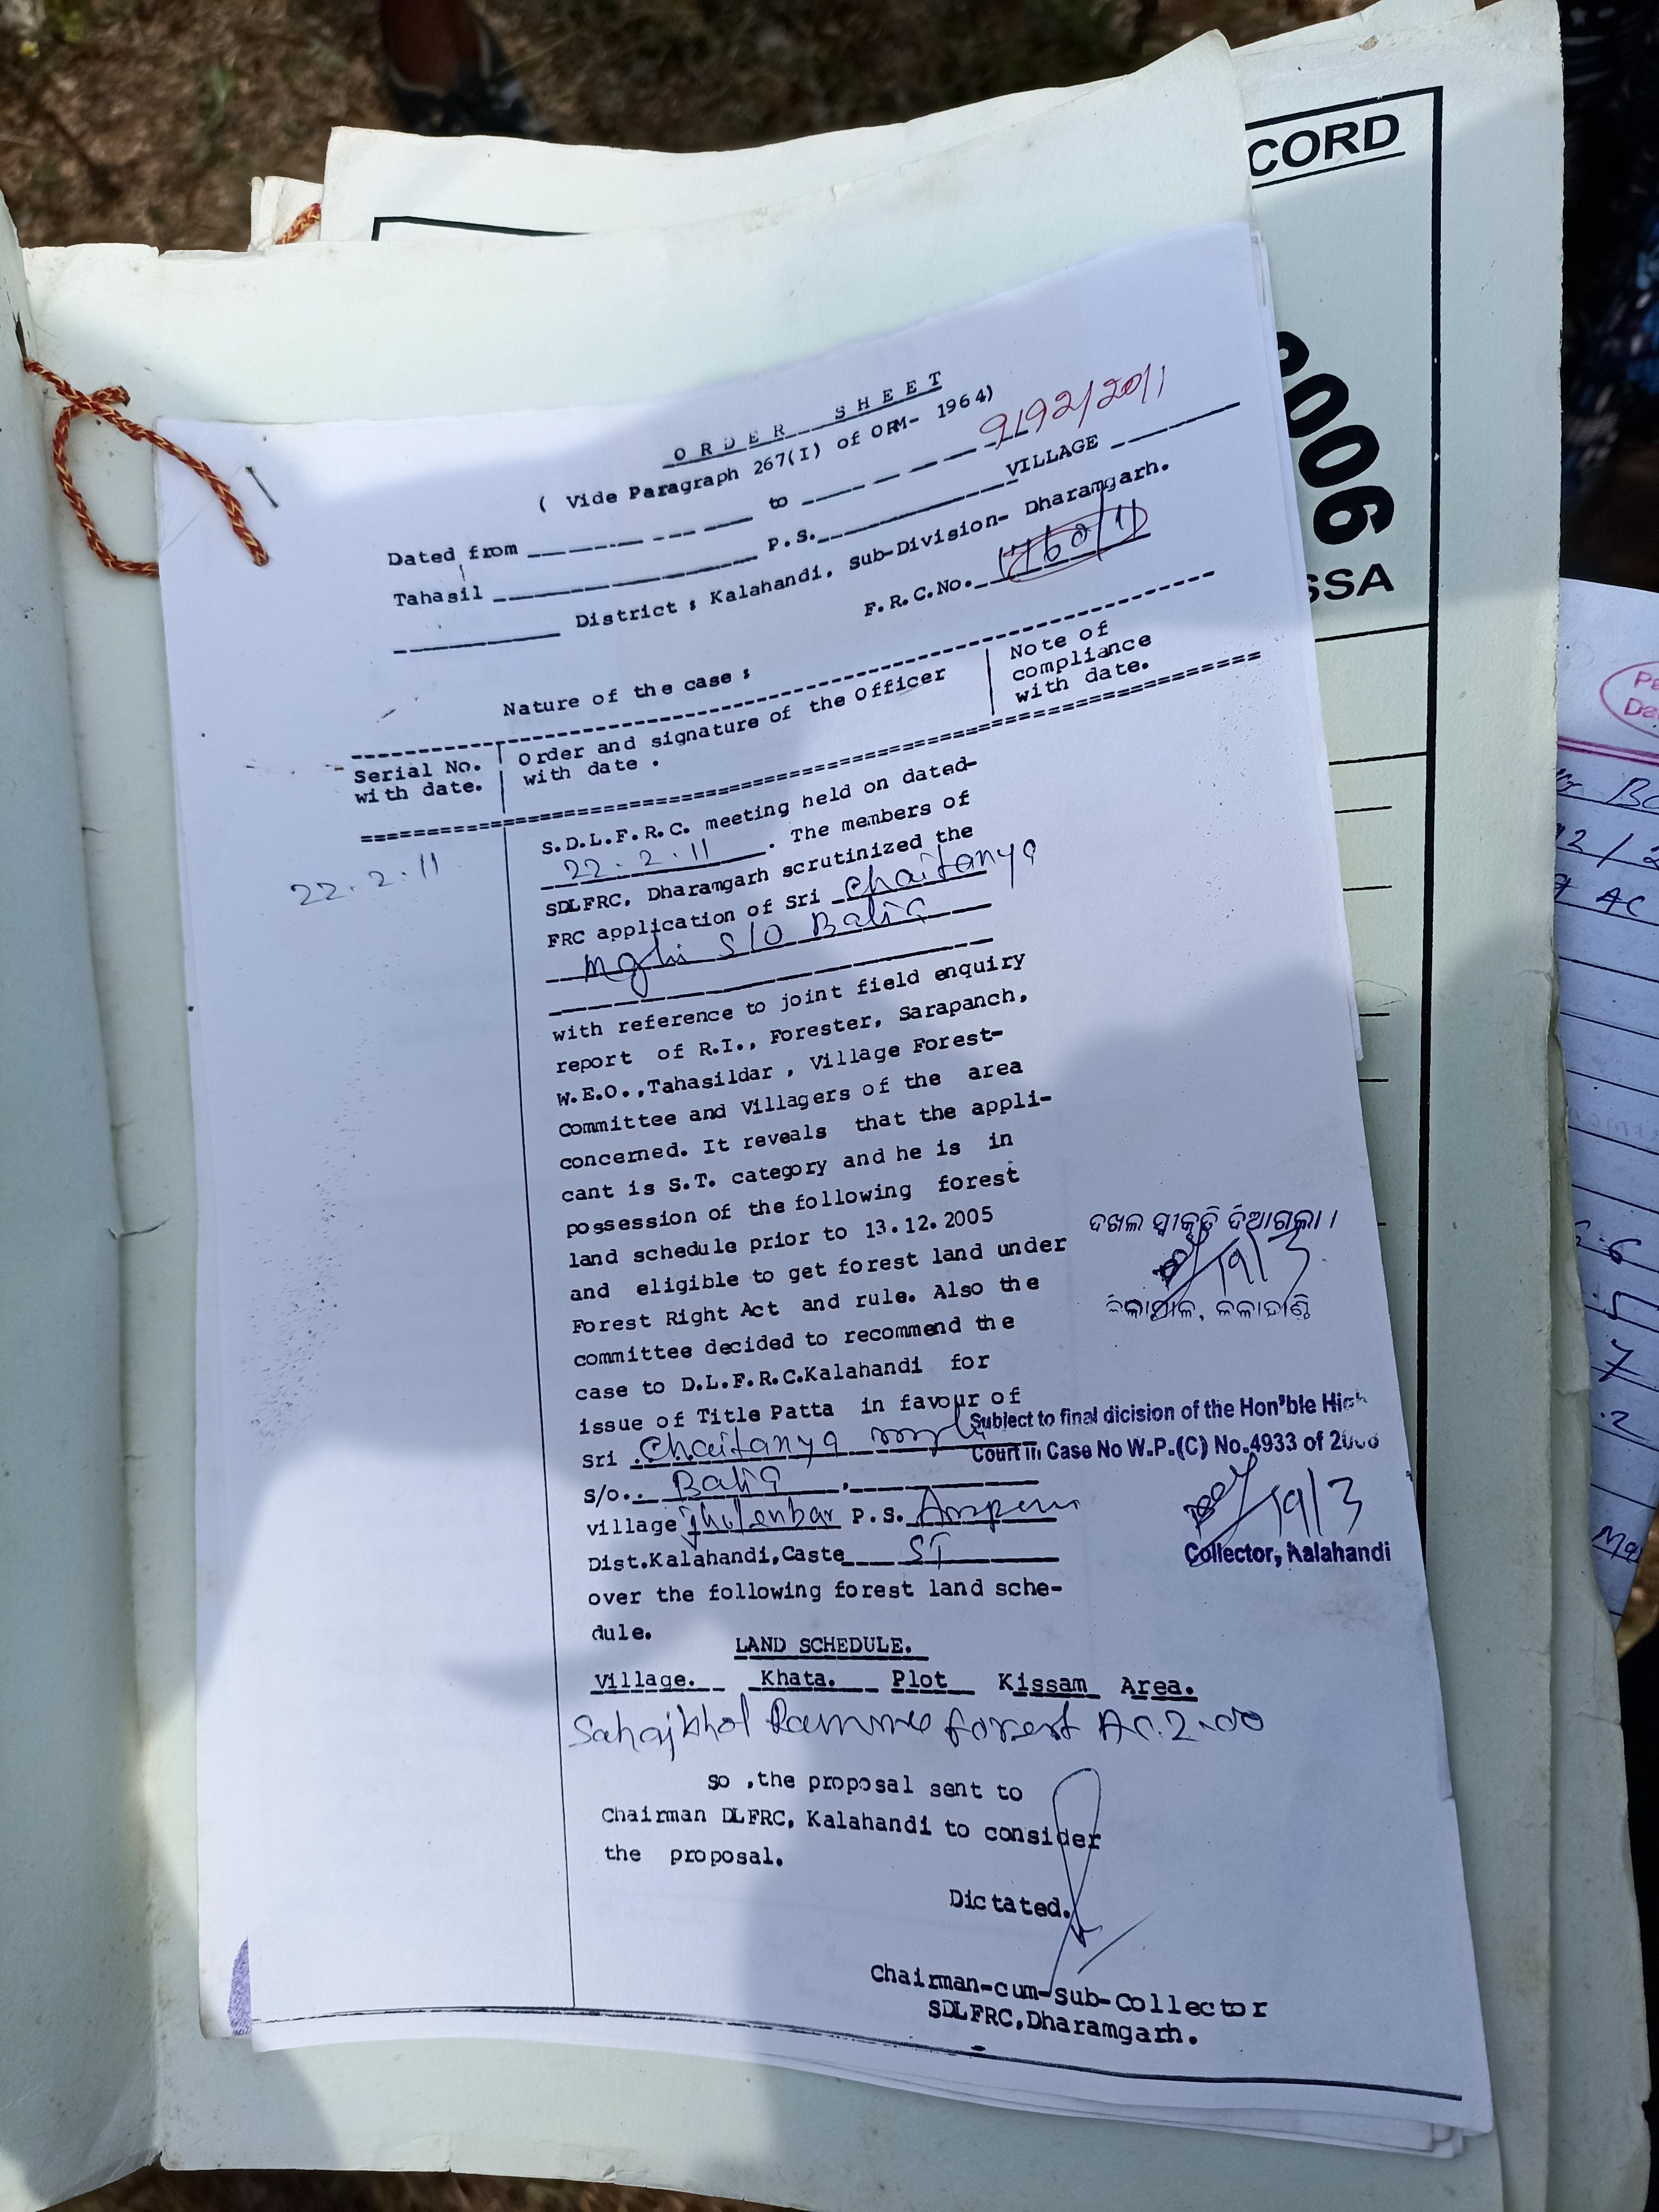 CORD
2006
SSA
ORDER SHEET
( Vide Paragraph 267(I) of ORM- 1964)
9192/2011
Dated from to
Tahasil P.S. VILLAGE
District : Kalahandi, sub-Division- Dharamgarh.
F.R.C.No. 1760/11
Nature of the case :
Serial No. with date.
Order and signature of the Officer with date .
Note of compliance with date.
22.2.11
S.D.L.F.R.C. meeting held on dated-
22.2.11 . The members of
SDLFRC, Dharamgarh scrutinized the
FRC application of Sri Chaitanya
Majhi S/O Balia
with reference to joint field enquiry
report of R.I., Forester, Sarapanch,
W.E.O.,Tahasildar , Village Forest-
Committee and Villagers of the area
concerned. It reveals that the appli-
cant is S.T. category and he is in
possession of the following forest
land schedule prior to 13.12.2005
and eligible to get forest land under
Forest Right Act and rule. Also the
committee decided to recommend the
case to D.L.F.R.C.Kalahandi for
issue of Title Patta in favour of
Sri Chaitanya
S/o.. Balia
village P.S.
Dist.Kalahandi,Caste ST
over the following forest land sche-
dule.
ଦଖଲ ସ୍ୱୀକୃତି ଦିଆଗଲା ।
19/3
ଜିଲାପାଳ, କଳାହାଣ୍ଡି
Subject to final dicision of the Hon'ble High
Court in Case No W.P.(C) No.4933 of 2008
19/3
Collector, Kalahandi
LAND SCHEDULE.
Village. Khata. Plot Kissam Area.
Sahajkhol forest AC.2.00
so ,the proposal sent to
Chairman DLFRC, Kalahandi to consider
the proposal.
Dictated.
Chairman-cum-Sub-Collector
SDLFRC,Dharamgarh.